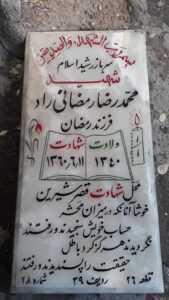 بسم رب الشهداء والصدیقین
سرباز رشید اسلام
شهید
محمدرضا رمضانی راد
فرزند رمضان
ولادت شهادت
۱۳۴۰ ۱۳۶۰/۶/۱۱
محل شهادت قصرشیرین
خوشا آنانکه در میزان محشر
حساب خویش سنجیدند و رفتند
نگردیدند هرگز گرد باطل
حقیقت را پسندیدند و رفتند
قطعه ۲۶ ردیف ۳۹ شماره ۲۸